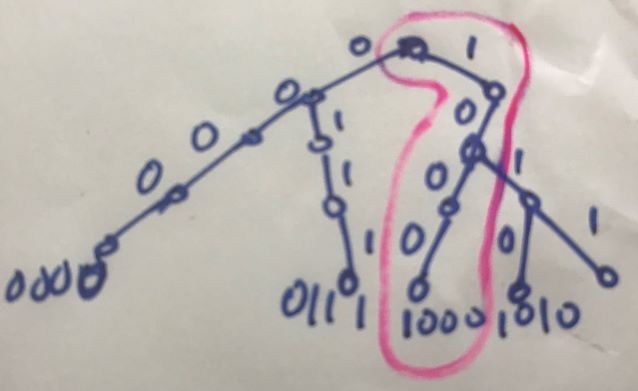 0 1
0 0
0 1 1
0 1 0
1 0 1
0000 0111 1000 1010